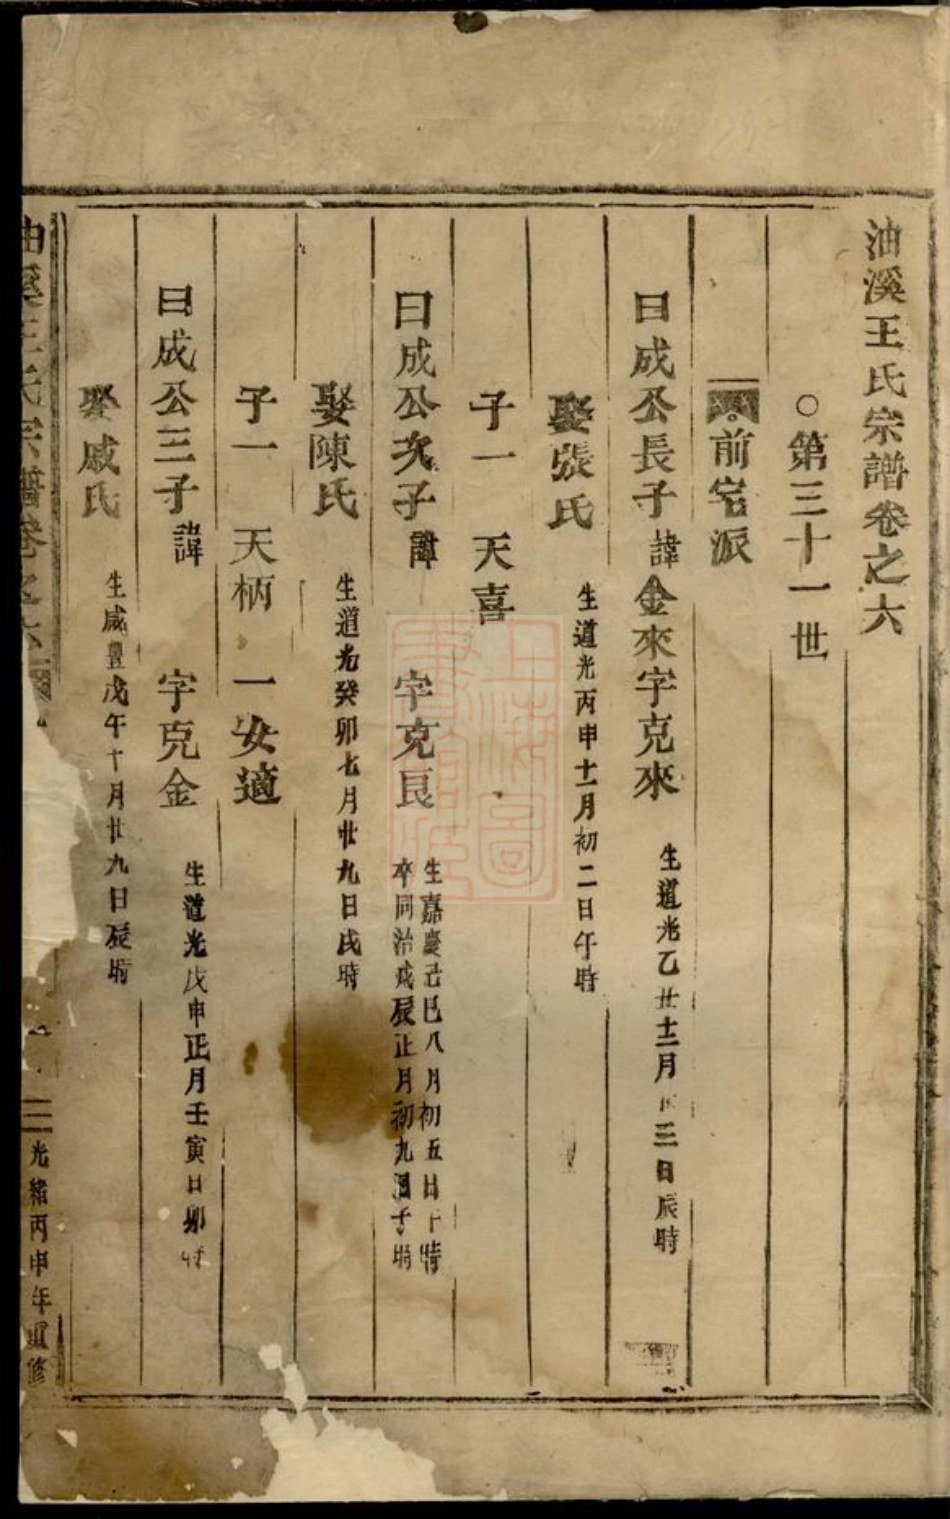 油溪王氏宗譜卷之六
○第三十一世
前宅派
曰成公長子 諱金來字克來 生道光乙丑十二月 三日辰時
娶張氏 生道光丙申十一月初二日午時
子一 天喜
曰成公次子 諱 字克良 生嘉慶己巳八月初五日 時
卒同治戊辰正月初九日子時
娶陳氏 生道光癸卯七月廿九日戌時
子一 天柄 一安適
曰成公三子 諱 字克金 生道光戊申正月壬寅日卯時
娶戚氏 生咸豐戊午十月廿九日辰時
油溪王氏宗譜卷之六
一 光緒丙申年重修